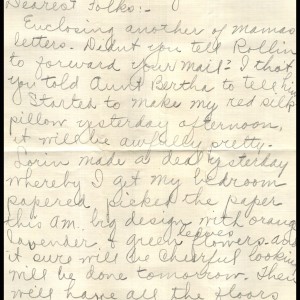 Dearest Folks:-
Enclosing another of Mamas
letters. Didn't you tell Rollin
to forward your mail? I that
you told Aunt Bertha to tell him
Started to make my red silk
pillow yesterday afternoon,
it will be awfully pretty.
Lorin made a deal yesterday
whereby I get my bedroom
papered, picked the paper
this am. big design with orange
lavender, & green leaves flowers. and
it sure will be cheerful looking
will be done tomorrow. Then
we'll have all the floors